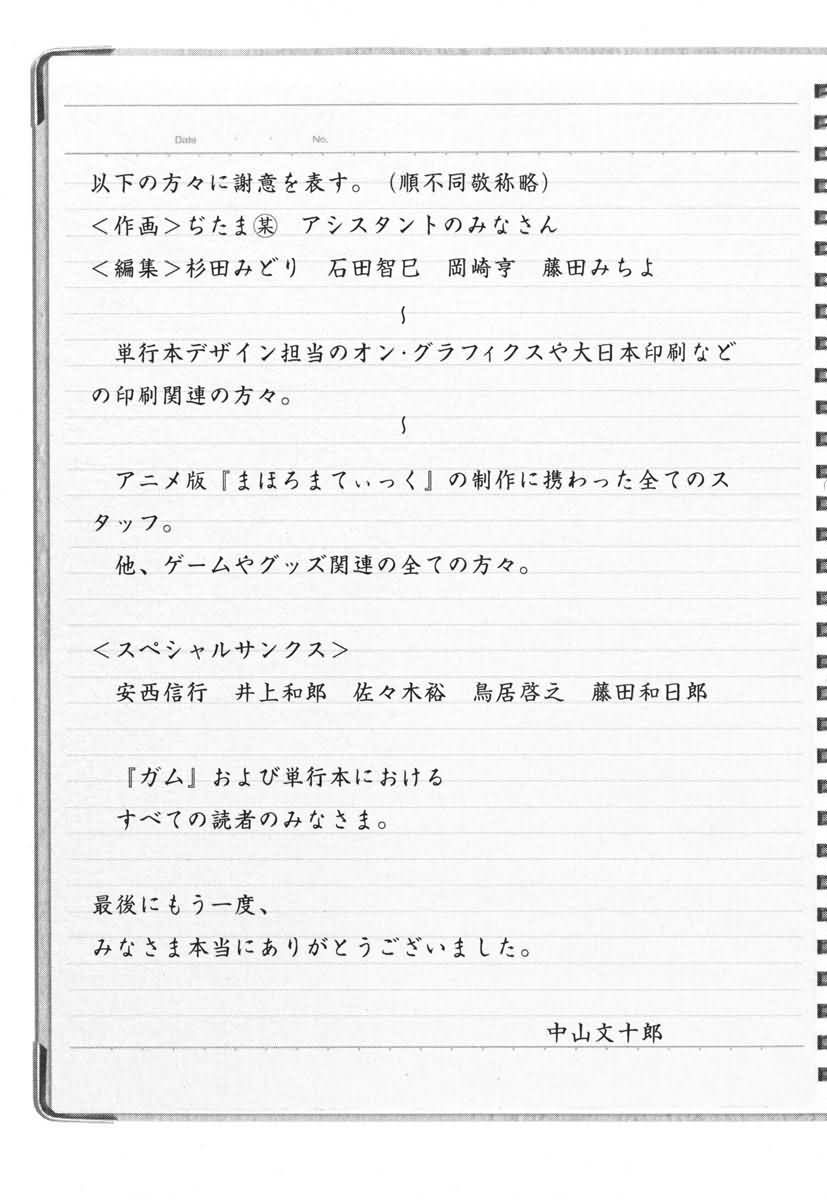 Date ・ ・ No.
以下の方々に謝意を表す。（順不同敬称略）
＜作画＞ぢたま㊙某 アシスタントのみなさん
＜編集＞杉田みどり 石田智巳 岡崎亨 藤田みちよ
～
単行本デザイン担当のオン・グラフィクスや大日本印刷など
の印刷関連の方々。
～
アニメ版『まほろまてぃっく』の制作に携わった全てのス
タッフ。
他、ゲームやグッズ関連の全ての方々。
＜スペシャルサンクス＞
安西信行 井上和郎 佐々木裕 鳥居啓之 藤田和日郎
『ガム』および単行本における
すべての読者のみなさま。
最後にもう一度、
みなさま本当にありがとうございました。
中山文十郎